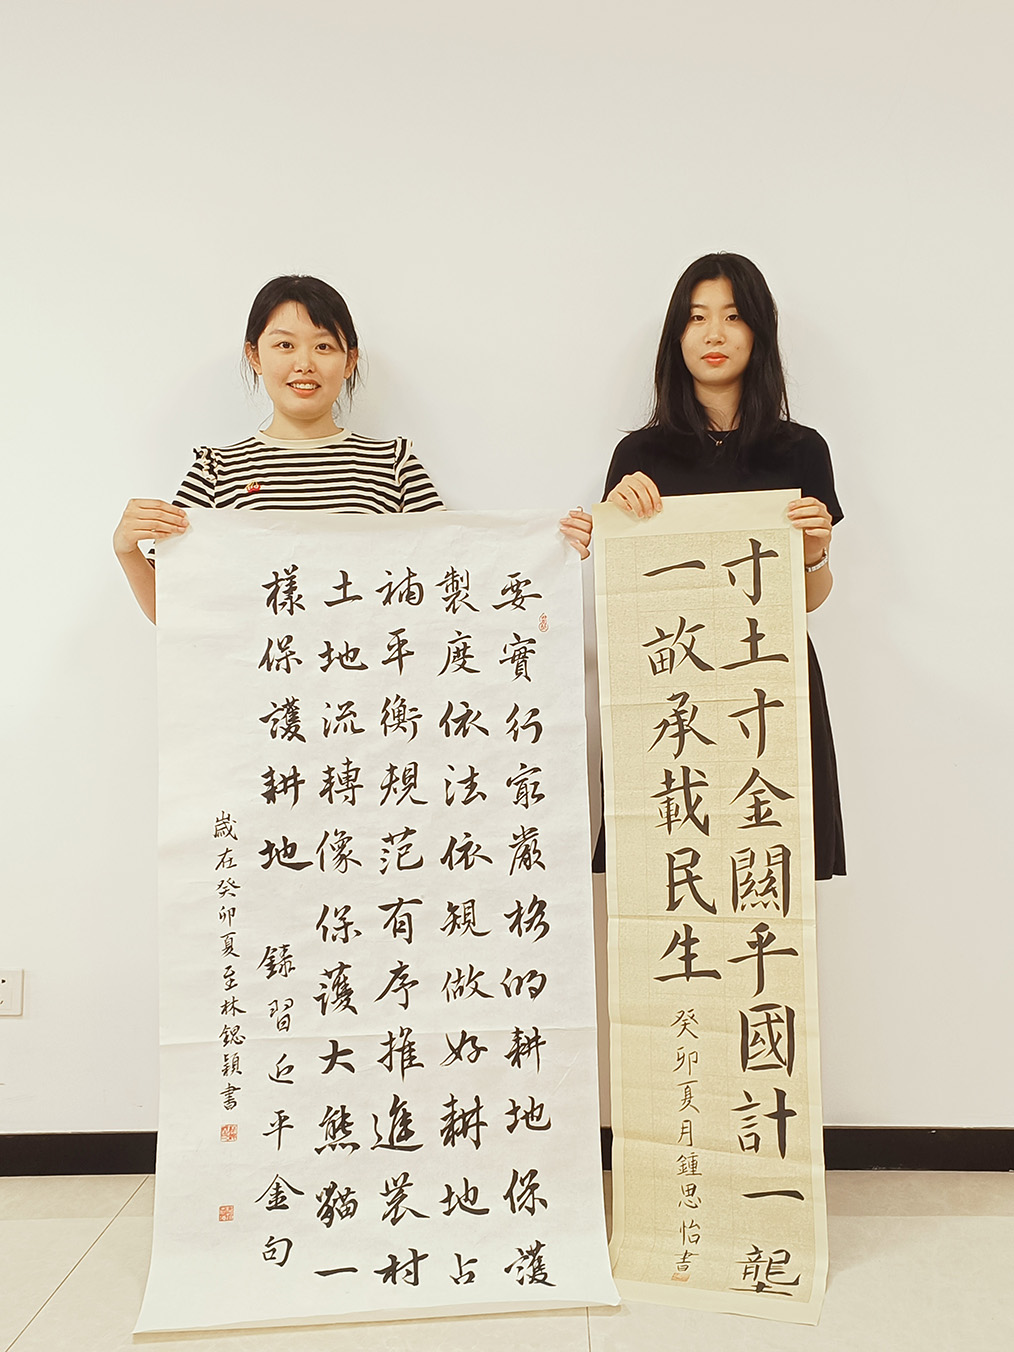 要實行最嚴格的耕地保護
製度依法依規做好耕地占
補平衡規范有序推進農村
土地流轉像保護大熊貓一
樣保護耕地 錄習近平金句
歲在癸卯夏至林鍶穎書
寸土寸金關乎國計一壟
一畝承載民生
癸卯夏月鍾思怡書